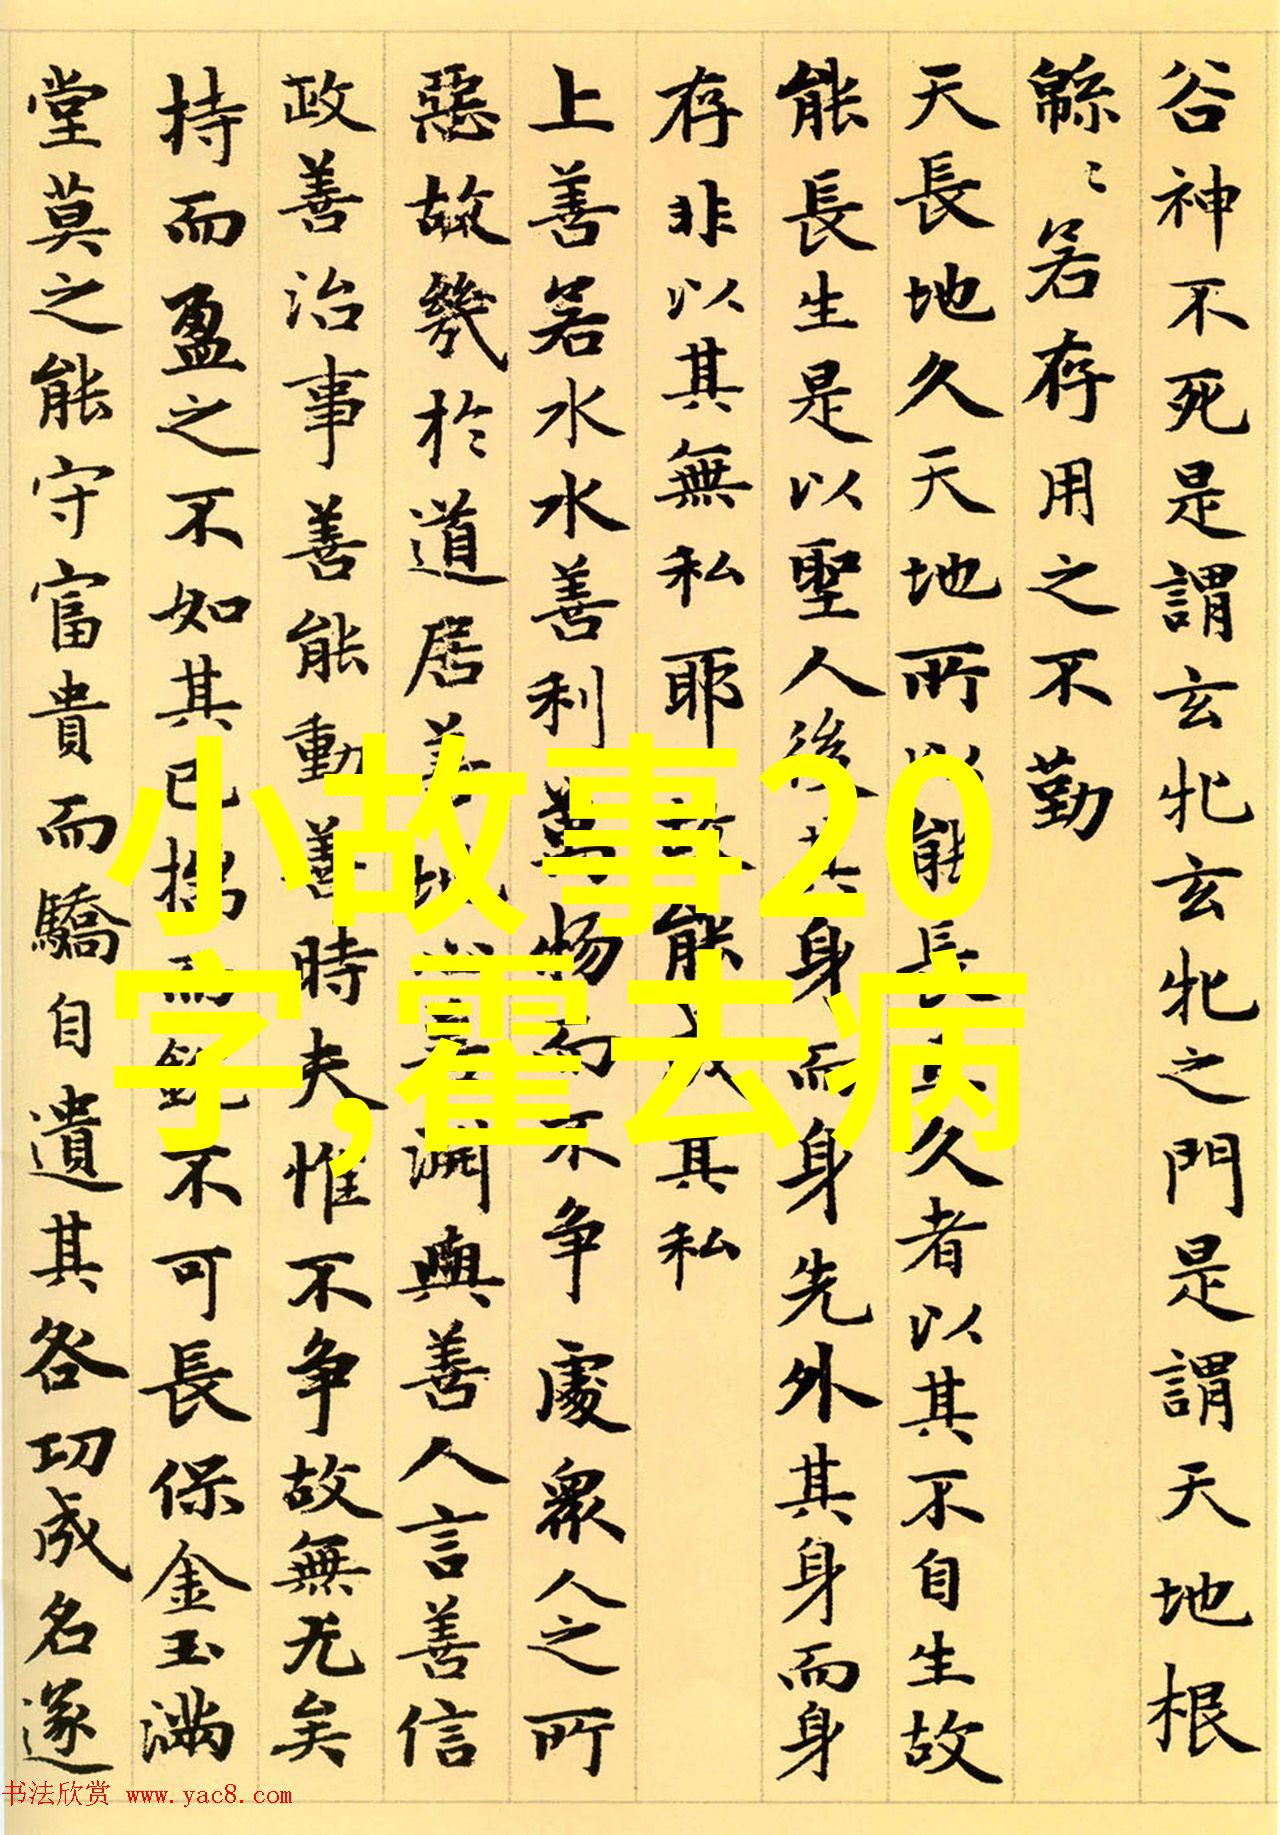 谷神不死是謂玄牝玄牝之門是謂天地根
緜〻若存用之不勤
天長地久天地所以能長且久者以其不自生故
能長生是以聖人後其身而身先外其身而身
存非以其無私耶故能成其私
上善若水水善利萬物而不争處衆人之所
惡故幾於道居善地心善淵與善人言善信
政善治事善能動善時夫惟不争故無尤矣
持而盈之不如其已揣而銳不可長保金玉滿
堂莫之能守富貴而驕自遺其咎功成名遂
小故事20
字,霍去病
书法欣赏 www.yac8.com